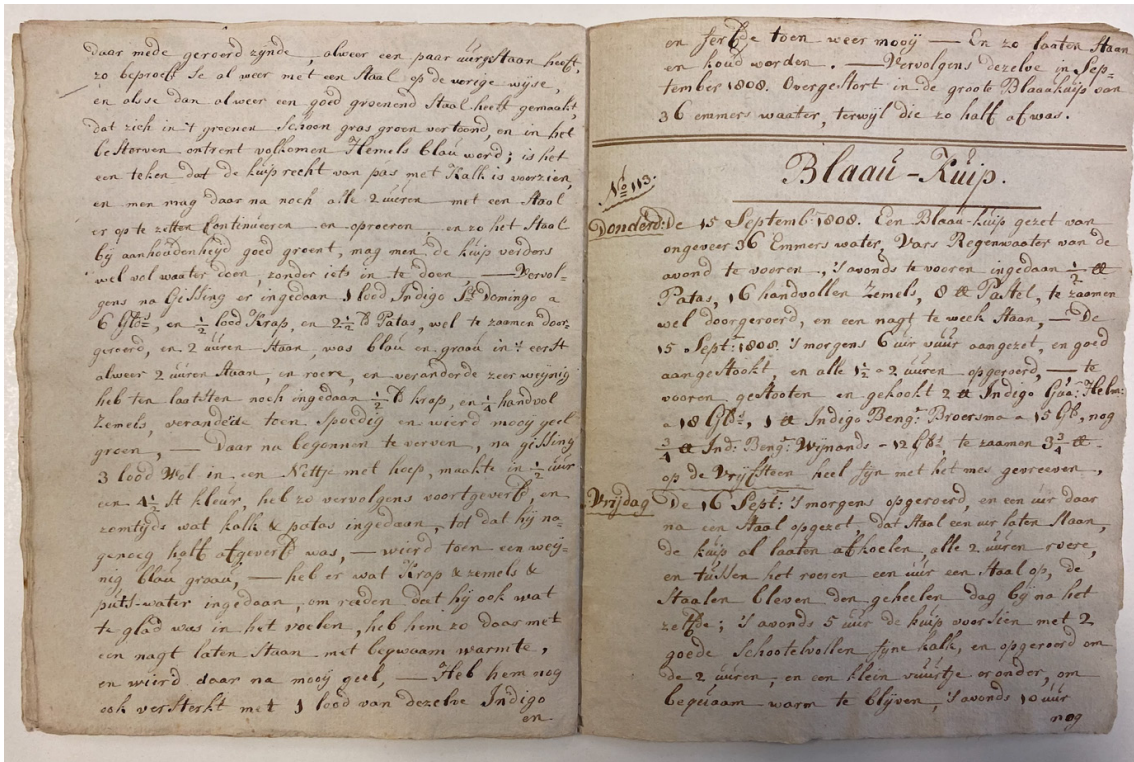 daar mede geroerd zynde, alweer een paar uuren staan heeft,
zo beproeft se al weer met een Staal op de vorige wyse,
en als se dan alweer een goed groenend Staal heeft gemaakt,
dat zich in 't groenen Schoon gras groen vertoond, en in het
besterven ontrent volkomen Hemels blau word; is het
een teken dat de kuip recht van pas met Kalk is voorzien,
en men mag daar na noch alle 2 uuren met een Staal
er op te zetten Continueeren en oproeren, en zo het Staal
bij aanhoudenheyd goed groent, mag men de kuip verders
wel vol waater doen, zonder iets in te doen — Vervol-
gens na Gissing er ingedaan 1 lood Indigo St Domingo a
6 Glds, en 1/2 lood Krap, en 2 1/2 lb Patas, wel te zaamen door-
geroerd, en 2 uuren Staan, was blau en graau in 't eerst
alweer 2 uuren Staan, en roere, en veranderde zeer weynig
heb ten laatsten noch ingedaan 1/2 lb krap, en 1/4 handvol
Zemels, veranderde toen Spoedig en wierd mooy geel
groen, — Daar na begonnen te verven, na gissing
3 lood Wol in een Nettje met hoep, maakte in 1/2 uur
een 4 1/2 st kleur, heb zo vervolgens voortgeverft, en
zomtyds wat kalk & patas ingedaan, tot dat hy na-
genoeg half afgeverft was, — wierd toen een wey-
nig blau graau, — heb er wat Krap & zemels &
puts-water ingedaan, om reeden dat hy ook wat
te glad was in het voelen, heb hem zo daar met
een nagt laten Staan met bequaam warmte,
en wierd daar na mooy geel, — Heb hem nog
ook versterkt met 1 lood van dezelve Indigo
en
en ferfde toen weer mooy — En zo laaten Staan
en koud worden. — Vervolgens dezelve in Sep-
tember 1808. Overgestort in de groote Blaaukuip van
36 emmers waater, terwijl die zo half af was.
No 113.
Blaau-Kuip.
Donderd: De 15 Septemb 1808. Een Blaau-kuip gezet van
ongeveer 36 Emmers water, Vars Regenwaater van de
avond te vooren, 's avonds te vooren ingedaan 1/2 lb
Patas, 16 handvollen Zemels, 8 lb Pastel, te zaamen
wel doorgeroerd, en een nagt te week Staan, — De
15 Sept: 1808. 's morgens 6 uur vuur aangezet, en goed
aangestookt, en alle 1 1/2 a 2 uuren opgeroerd, — te
vooren gestooten en gekookt 2 lb Indigo
a 18 Glds, 1 lb Indigo Beng: Broersma a 15 Gls, nog
3/4 lb Ind: Beng: Wijnands a 12 Glds, te zaamen 3 3/4 lb.
op de Vrijfsteen heel fyn met het mes gevreeven,
Vrijdag De 16 Sept: 's morgens opgeroerd, en een uur daar
na een Staal opgezet, dat Staal een uur laten Staan,
de kuip al laaten afkoelen, alle 2 uuren roere,
en tussen het roeren een uur een Staal op, de
Staalen bleven den geheelen dag bij na het
zelfde; 's avonds 5 uur de kuip voorsien met 2
goede Schootelvollen fyne kalk, en opgeroerd om
de 2 uuren, en een klein vuurtje eronder, om
bequaam warm te blijven, 's avonds 10 uur
nog